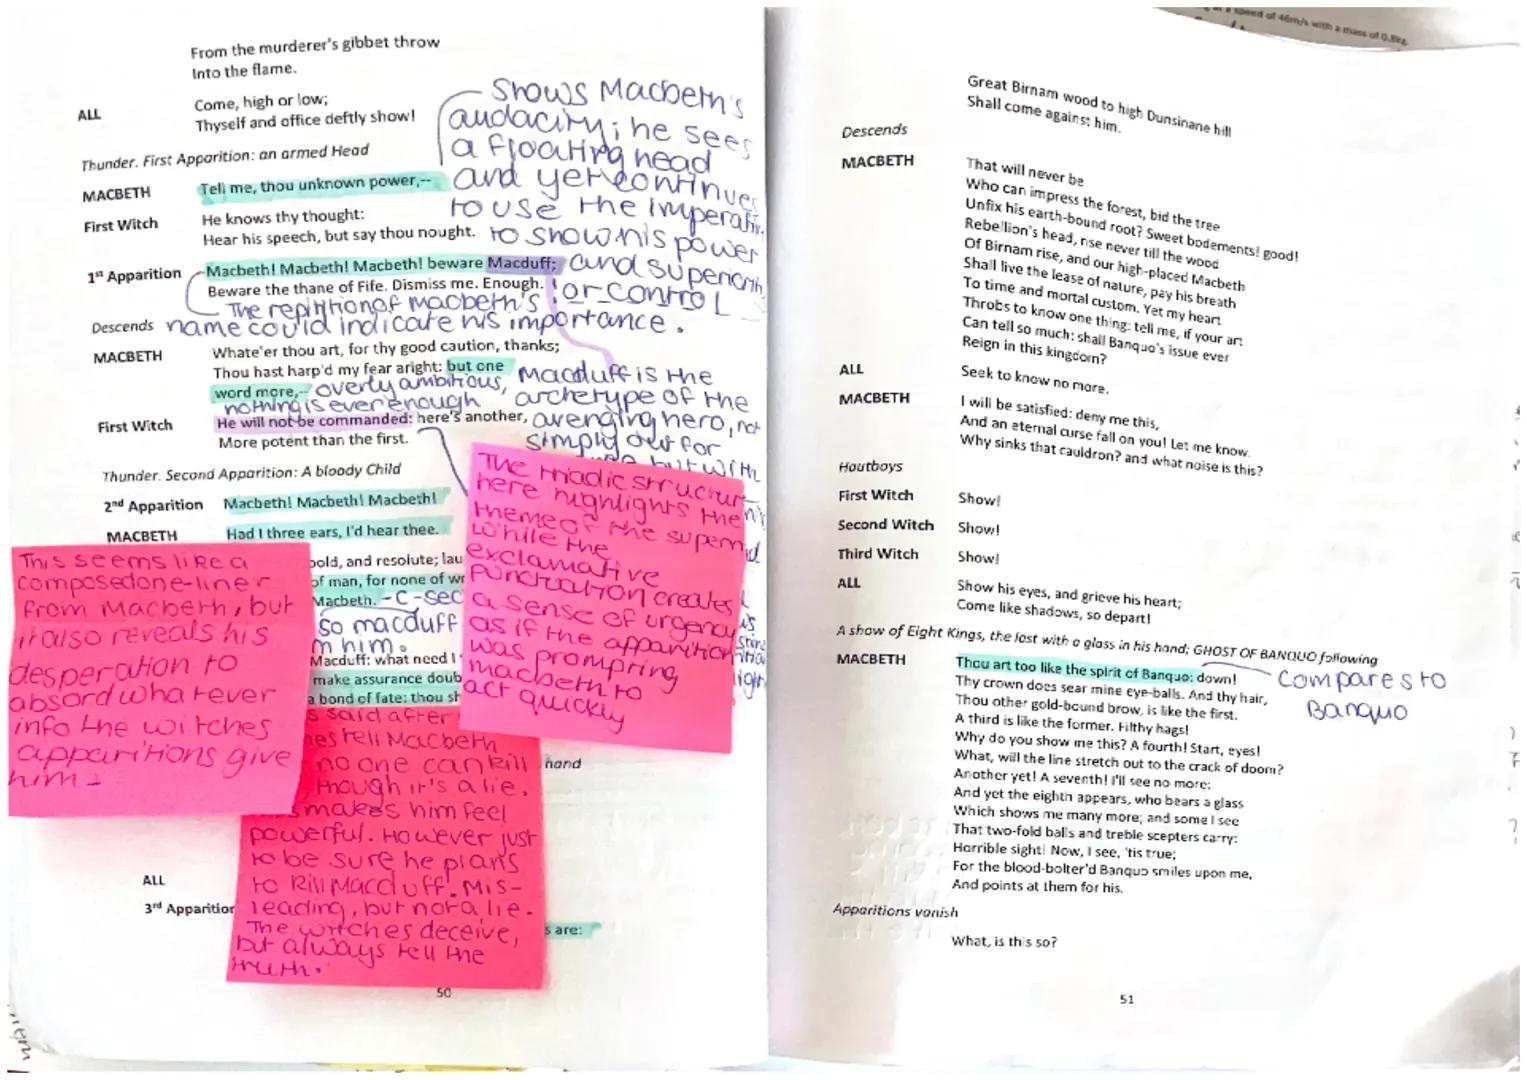 From the murderer's gibbet throw
Into the flame.
ALL Come, high or low;
Thyself and office deftly show!
Thunder. First Apparition: an armed Head
MACBETH Tell me, thou unknown power,--
First Witch He knows thy thought:
Hear his speech, but say thou nought.
1st Apparition Macbeth! Macbeth! Macbeth! beware Macduff;
Beware the thane of Fife. Dismiss me. Enough.
Descends
MACBETH Whate'er thou art, for thy good caution, thanks;
Thou hast harp'd my fear aright: but one
word more,--
First Witch He will not be commanded: here's another,
More potent than the first.
Thunder. Second Apparition: A bloody Child
2nd Apparition Macbeth! Macbeth! Macbeth!
MACBETH Had I three ears, I'd hear thee.
bold, and resolute;
of man, for none of
Macbeth.
Macduff: what need I
make assurance
a bond of fate: thou
hand
ALL
3rd Apparition
are:
50
Shows Macbeth's
audacity; he sees
a floating head
and yet continues
to use the
to show his power
and
or control
The repitition of macbeth's
name could indicate his importance.
overly ambitious,
nothing is ever enough
Macduff is the
archetype of the
avenging hero, not
simply out for
but with
so macduff
him.
The triadic
here highlights the
theme of the
while the
exclamative
punctuation creates
a sense of urgency
as if the apparition
was prompting
macbeth to
act quickly
This seems like a
composed one-liner
from Macbeth, but
it also reveals his
desperation to
absord whatever
info the witches
apparitions give
him-
said after
tell Macbeth
no one can kill
though it's a lie.
makes him feel
powerful. However just
to be sure he plans
to kill Macduff. Mis-
leading, but not a lie.
The witches deceive,
but always tell the
truth.
speed of 46m/s with a mass of 0.8kg
Great Birnam wood to high Dunsinane hill
Shall come against him.
Descends
MACBETH That will never be
Who can impress the forest, bid the tree
Unfix his earth-bound root? Sweet bodements! good!
Rebellion's head, rise never till the wood
Of Birnam rise, and our high-placed Macbeth
Shall live the lease of nature, pay his breath
To time and mortal custom. Yet my heart
Throbs to know one thing: tell me, if your art
Can tell so much: shall Banquo's issue ever
Reign in this kingdom?
ALL Seek to know no more.
MACBETH I will be satisfied: deny me this,
And an eternal curse fall on you! Let me know.
Why sinks that cauldron? and what noise is this?
Hautboys
First Witch Show!
Second Witch Show!
Third Witch Show!
ALL Show his eyes, and grieve his heart;
Come like shadows, so depart!
A show of Eight Kings, the last with a glass in his hand; GHOST OF BANQUO following
MACBETH Thou art too like the spirit of Banquo: down!
Thy crown does sear mine eye-balls. And thy hair,
Thou other gold-bound brow, is like the first.
A third is like the former. Filthy hags!
Why do you show me this? A fourth! Start, eyes!
What, will the line stretch out to the crack of doom?
Another yet! A seventh! I'll see no more:
And yet the eighth appears, who bears a glass
Which shows me many more; and some I see
That two-fold balls and treble scepters carry:
Horrible sight! Now, I see, 'tis true;
For the blood-bolter'd Banquo smiles upon me,
And points at them for his.
Apparitions vanish
What, is this so?
compares to
Banquo
51